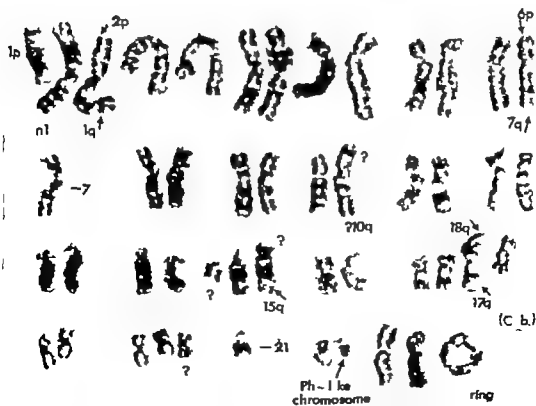 2p
6p
1p
n1
1q
7q
?
-7
?10q
18q
?
?
15q
17q
(C. b.)
?
-21
Ph-l ke
chromosome
ring